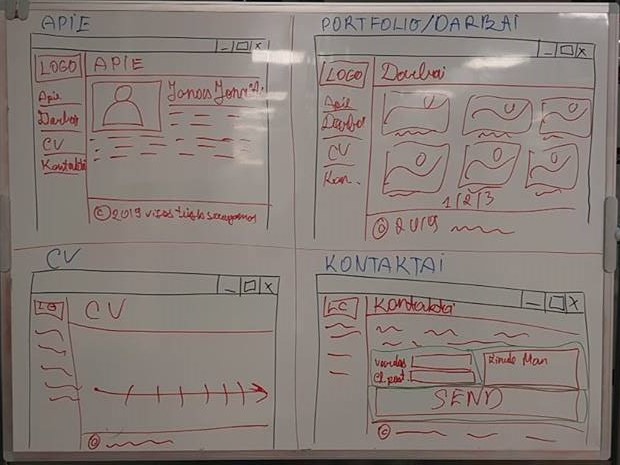 APIE
X
LOGO
APIE
Apie
Darbai
CV
Kontaktai
Jonas
© 2019 visos teisės saugomos
PORTFOLIO/DARBAI
X
LOGO
Darbai
Apie
Darbai
CV
Kon.
1/2/3
© 2019
CV
X
LO
CV
©
KONTAKTAI
X
Kontaktai
Vardas
El. past.
Žinutė Man
SEND
©